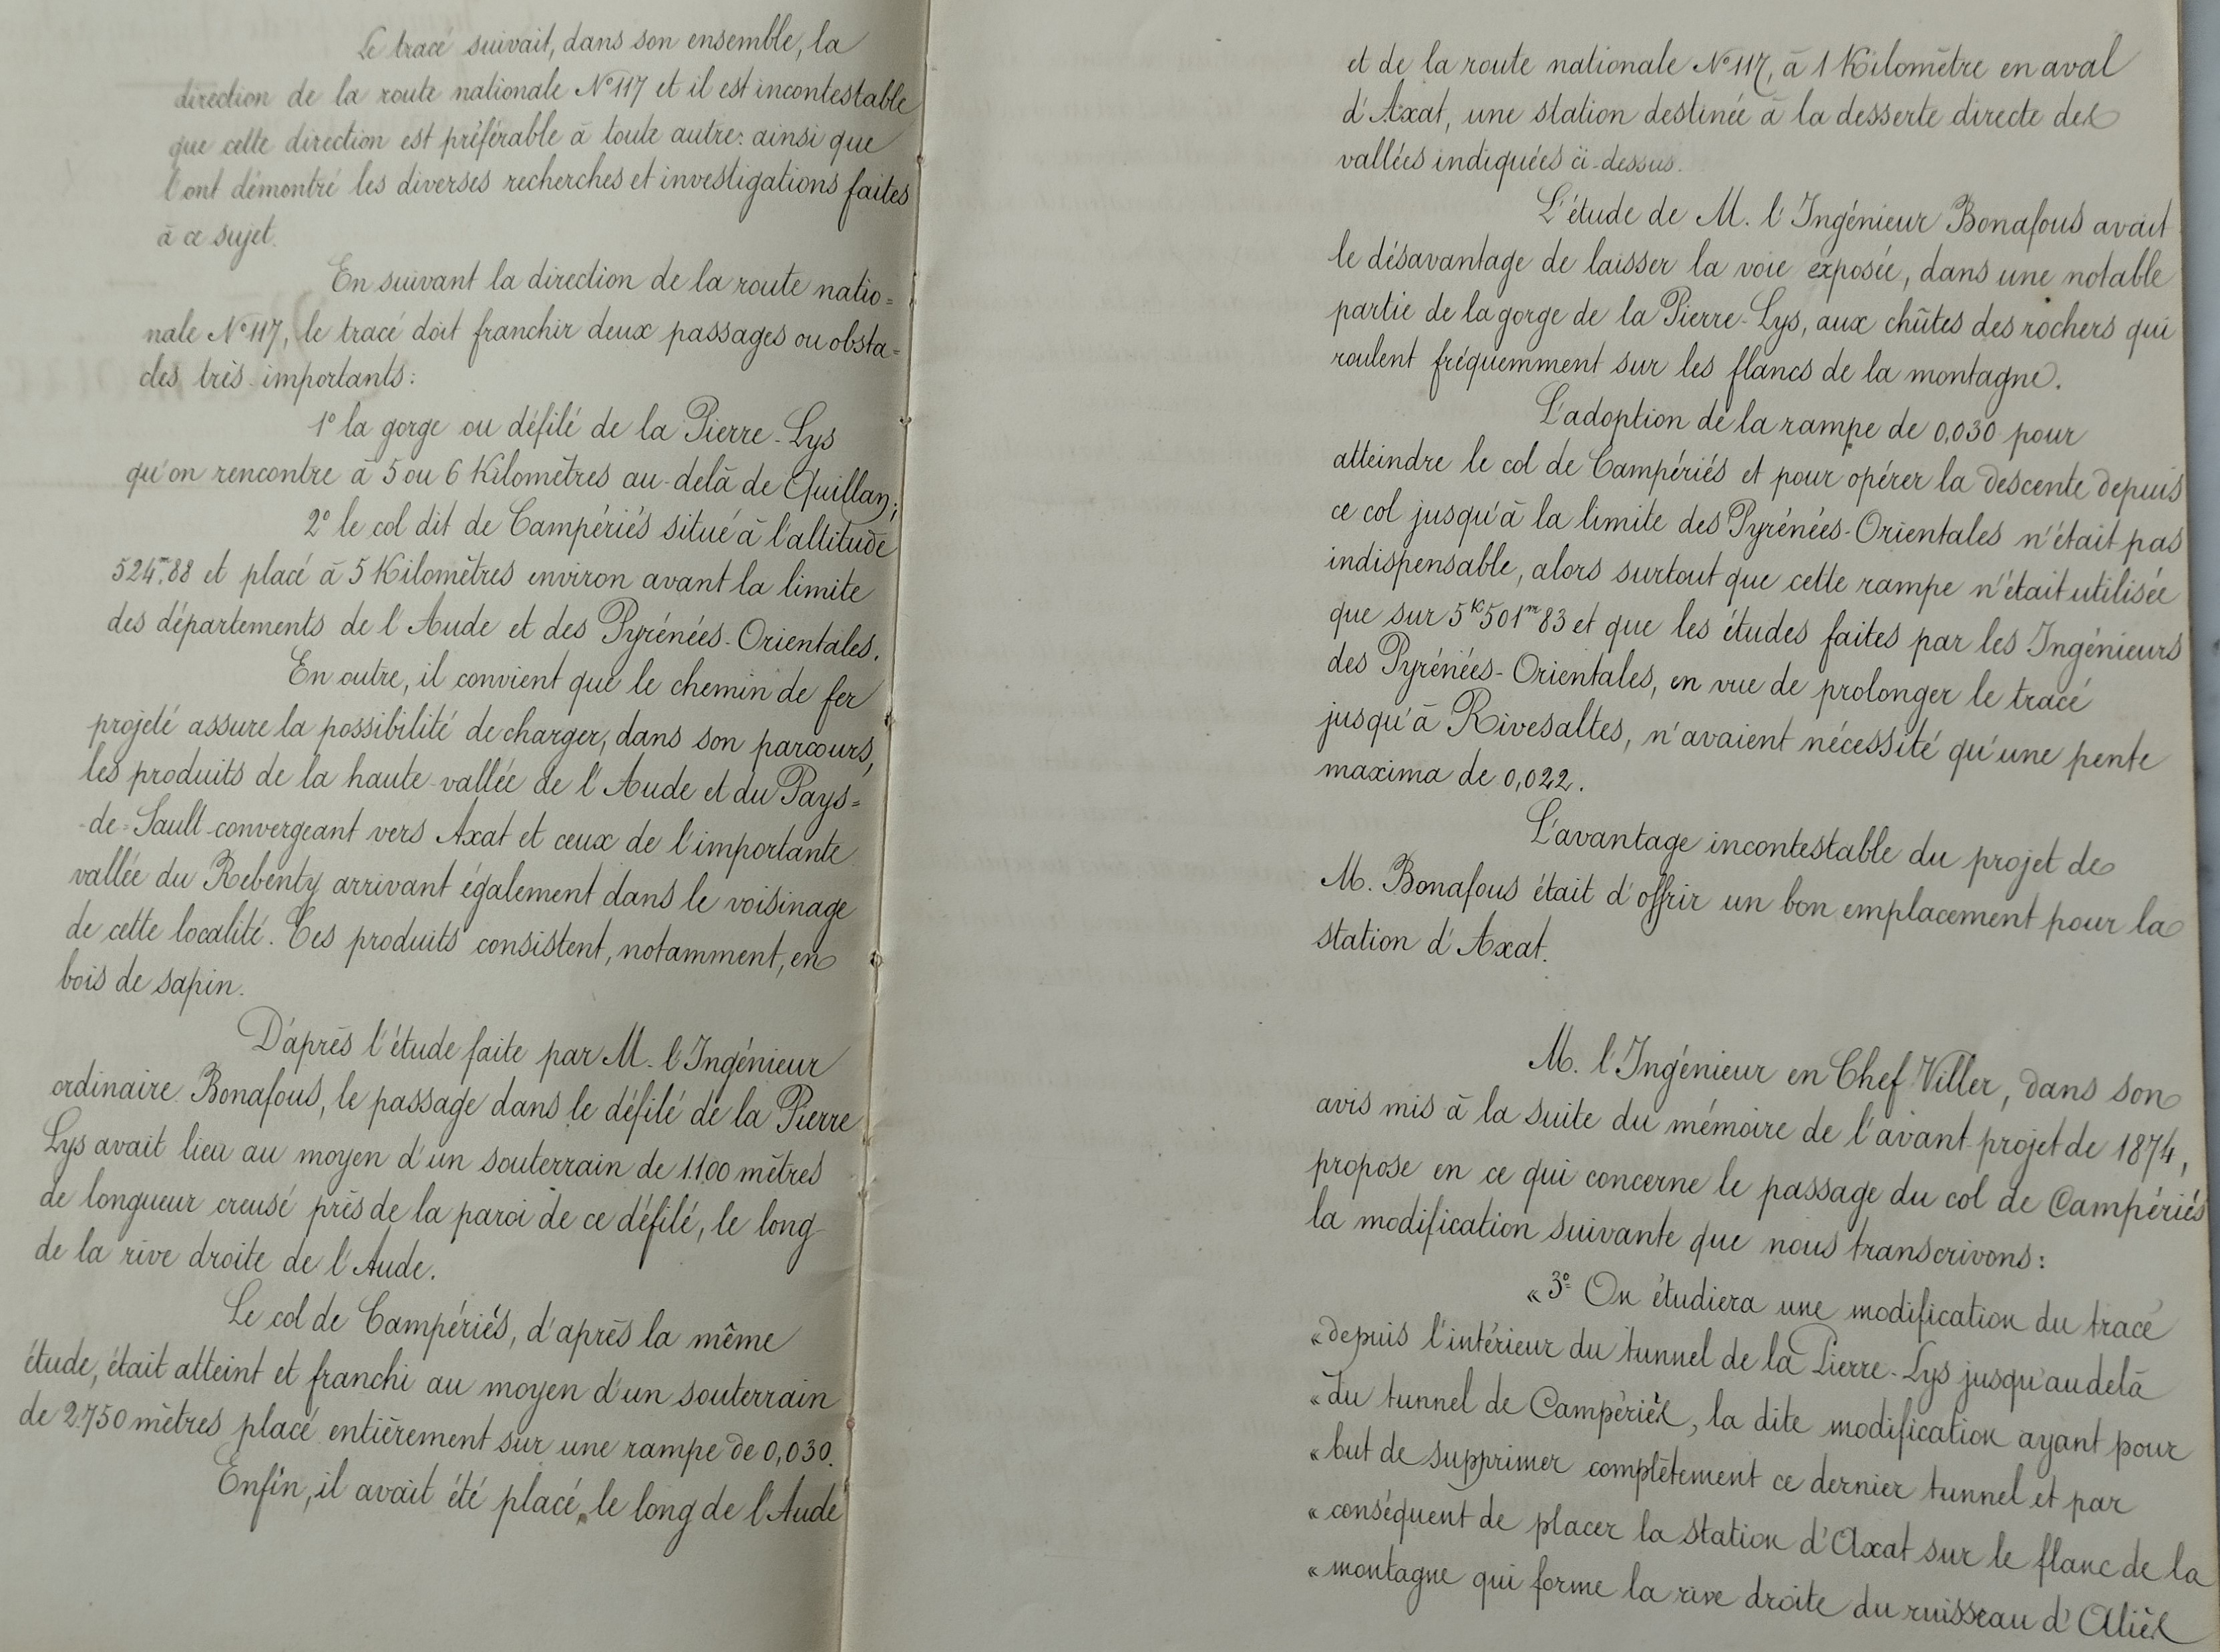 Le tracé suivait, dans son ensemble, la
direction de la route nationale N° 117 et il est incontestable
que cette direction est préférable à toute autre: ainsi que
l'ont démontré les diverses recherches et investigations faites
à ce sujet.
En suivant la direction de la route natio=
nale N° 117, le tracé doit franchir deux passages ou obsta=
cles très-importants:
1° la gorge ou défilé de la Pierre-Lys
qu'on rencontre à 5 ou 6 Kilomètres au-delà de Quillan;
2° le col dit de Campériés situé à l'altitude
524m,88 et placé à 5 Kilomètres environ avant la limite
des départements de l'Aude et des Pyrénées-Orientales.
En outre, il convient que le chemin de fer
projeté assure la possibilité de charger, dans son parcours,
les produits de la haute-vallée de l'Aude et du Pays=
-de-Sault convergeant vers Axat et ceux de l'importante
vallée du Rebenty arrivant également dans le voisinage
de cette localité. Ces produits consistent, notamment, en
bois de sapin.
D'après l'étude faite par M. l'Ingénieur
ordinaire Bonafous, le passage dans le défilé de la Pierre
Lys avait lieu au moyen d'un souterrain de 1.100 mètres
de longueur creusé près de la paroi de ce défilé, le long
de la rive droite de l'Aude.
Le col de Campériés, d'après la même
étude, était atteint et franchi au moyen d'un souterrain
de 2.750 mètres placé entièrement sur une rampe de 0,030.
Enfin, il avait été placé, le long de l'Aude
et de la route nationale N° 117, à 1 Kilomètre en aval
d'Axat, une station destinée à la desserte directe des
vallées indiquées ci-dessus.
L'étude de M. l'Ingénieur Bonafous avait
le désavantage de laisser la voie exposée, dans une notable
partie de la gorge de la Pierre-Lys, aux chûtes des rochers qui
roulent fréquemment sur les flancs de la montagne.
L'adoption de la rampe de 0,030 pour
atteindre le col de Campériés et pour opérer la descente depuis
ce col jusqu'à la limite des Pyrénées-Orientales n'était pas
indispensable, alors surtout que cette rampe n'était utilisée
que sur 5K501m83 et que les études faites par les Ingénieurs
des Pyrénées-Orientales, en vue de prolonger le tracé
jusqu'à Rivesaltes, n'avaient nécessité qu'une pente
maxima de 0,022.
L'avantage incontestable du projet de
M. Bonafous était d'offrir un bon emplacement pour la
station d'Axat.
M. l'Ingénieur en Chef Viller, dans son
avis mis à la suite du mémoire de l'avant-projet de 1874,
propose en ce qui concerne le passage du col de Campériés
la modification suivante que nous transcrivons:
« 3° On étudiera une modification du tracé
« depuis l'intérieur du tunnel de la Pierre-Lys jusqu'au delà
« du tunnel de Campériés, la dite modification ayant pour
« but de supprimer complètement ce dernier tunnel et par
« conséquent de placer la station d'Axat sur le flanc de la
« montagne qui forme la rive droite du ruisseau d'Aliès